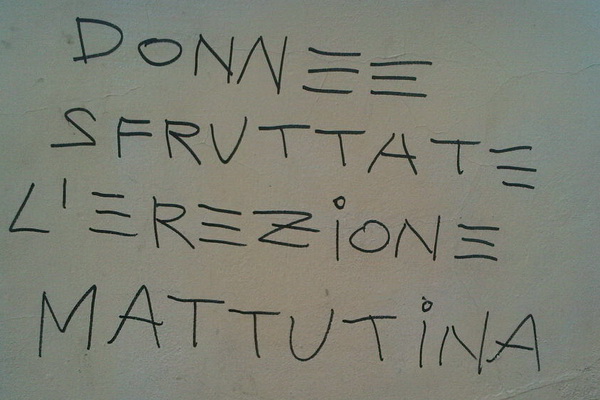 DONNEE
SFRUTTATE
L'EREZiONE
MATTUTiNA